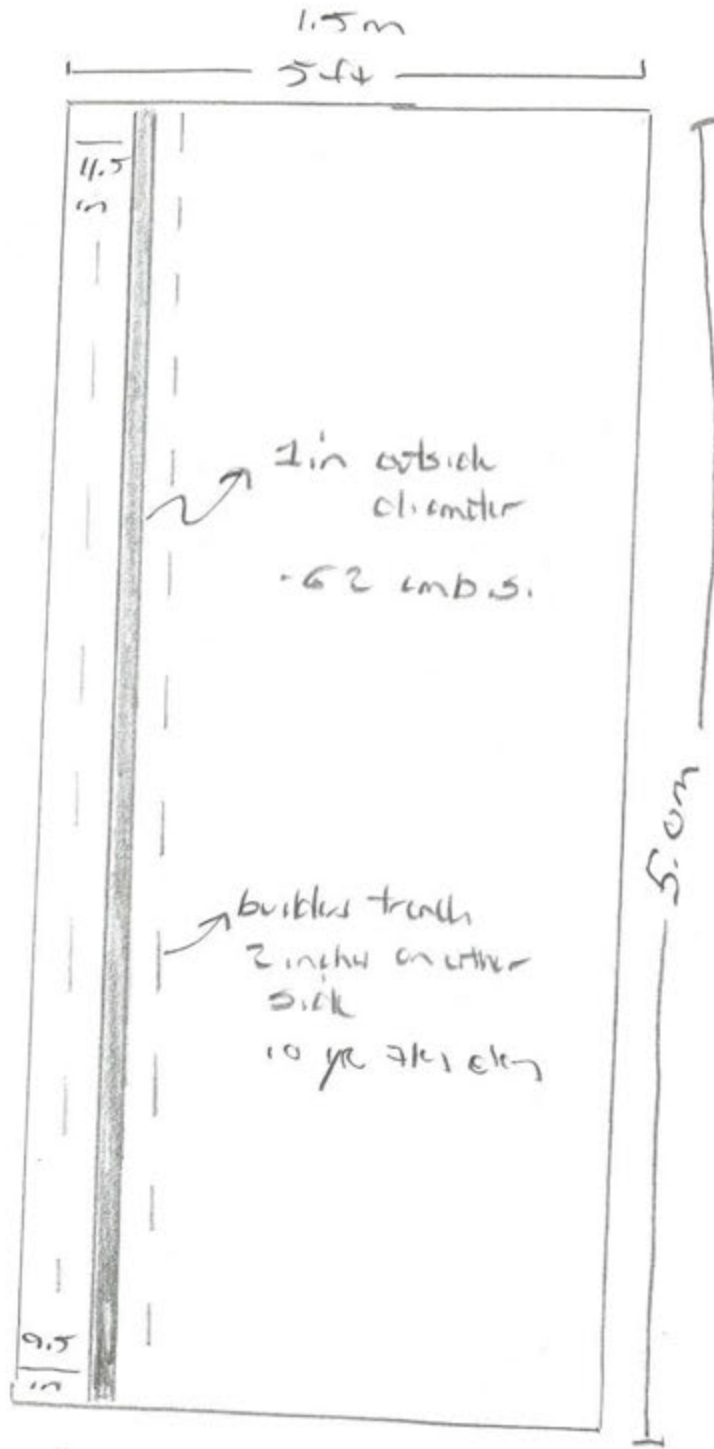 1.5 m
5 ft
11.5
in
1 in outside
diameter
- 62 cmb.s.
5.0m
builders trench
2 inches on either
side
10 yr clay
9.5
in